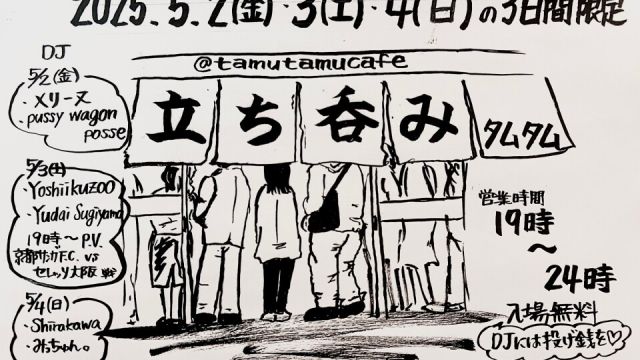 2025.5.2(金)・3(土)・4(日)の3日間限定
@tamutamucafe
立ち呑み
タムタム
DJ
5/2(金)
・メリーヌ
・pussy wagon
posse
5/3(土)
・Yoshiikuzoo
・Yudai Sugiyama
19時〜P.V.
京都サンガF.C. vs
セレッソ大阪戦
5/4(日)
・Shirakawa
・みっちゃん。
営業時間
19時
〜
24時
入場無料
DJには投げ銭を♡